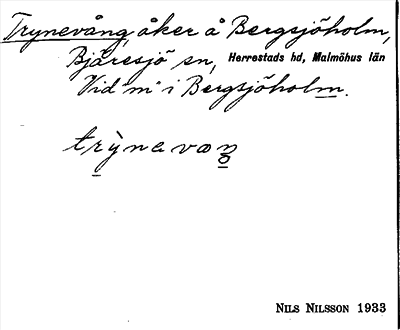 Trynevång, åker å Bergsjöholm,
Bjäresjö sn, Herrestads hd, Malmöhus län
Vid "m" i Bergsjöholm.
trỳnevaŋ
NILS NILSSON 1933